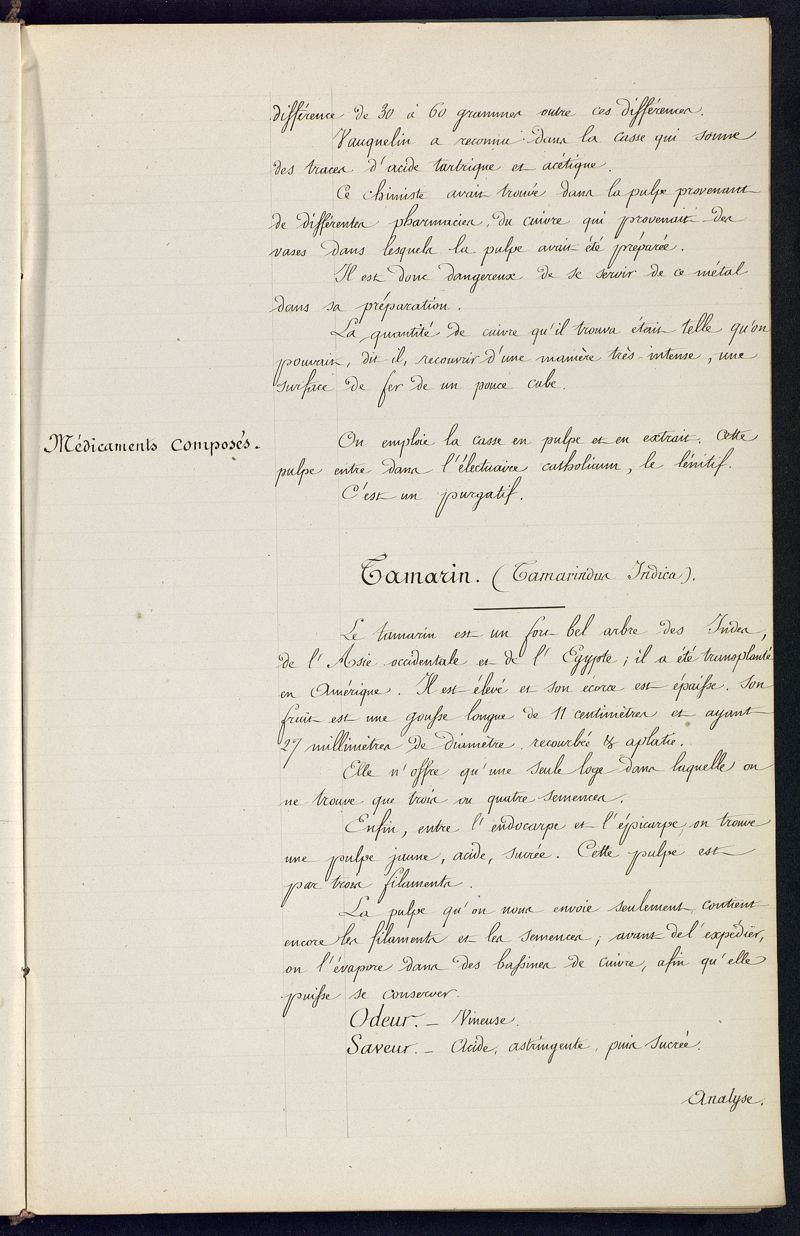 différence de 30 à 60 grammes outre ces différences.
Vauquelin a reconnu dans la casse qui sonne
des traces d'acide tartrique et acétique.
Ce chimiste avait trouvé dans la pulpe provenant
de différentes pharmacies, du cuivre qui provenait des
vases dans lesquels la pulpe avait été préparée.
Il est donc dangereux de se servir de ce métal
dans sa préparation.
La quantité de cuivre qu'il trouva était telle qu'on
pouvait, dit il, recouvrir d'une manière très-intense, une
surface de fer de un pouce cube.
Médicaments composés.
On emploie la casse en pulpe et en extrait. Cette
pulpe entre dans l'électuaire catholicum, le lénitif.
C'est un purgatif.
Tamarin. (Tamarindus Indica).
Le tamarin est un fort bel arbre des Indes,
de l'Asie occidentale et de l'Egypte; il a été transplanté
en Amérique. Il est élevé et son écorce est épaisse. Son
fruit est une gousse longue de 11 centimètres et ayant
27 millimètres de diamètre, recourbée & aplatie.
Elle n'offre qu'une seule loge dans laquelle on
ne trouve que trois ou quatre semences.
Enfin, entre l'endocarpe et l'épicarpe, on trouve
une pulpe jaune, acide, sucrée. Cette pulpe est
par trois filaments.
La pulpe qu'on nous envoie seulement contient
encore les filaments et les semences; avant de l'expédier,
on l'évapore dans des bassines de cuivre, afin qu'elle
puisse se conserver.
Odeur. _ Vineuse.
Saveur. _ Acide, astringente, puis sucrée.
Analyse.